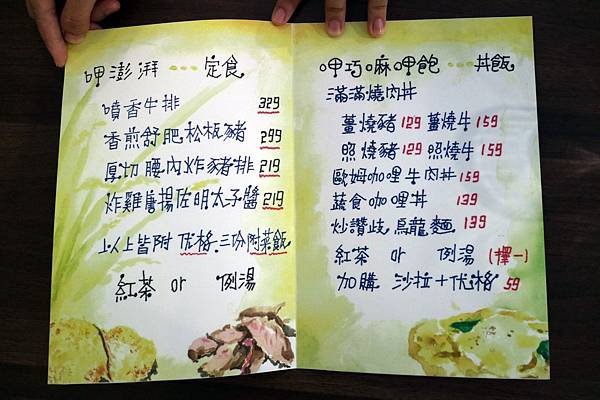 呷澎湃 ... 定食
噴香牛排 329
香煎舒肥松板豬 299
厚切腰內炸豬排 219
炸雞唐揚佐明太子醬 219
以上皆附 优格.三份附菜飯
紅茶 or 例湯
呷巧嘛呷飽 ... 丼飯
滿滿燒肉丼
薑燒豬 129 薑燒牛 159
照燒豬 129 照燒牛 159
歐姆咖哩牛肉丼 159
蔬食咖哩丼 139
炒讚歧烏龍麵 139
紅茶 or 例湯 (擇一)
加購 沙拉+优格 59